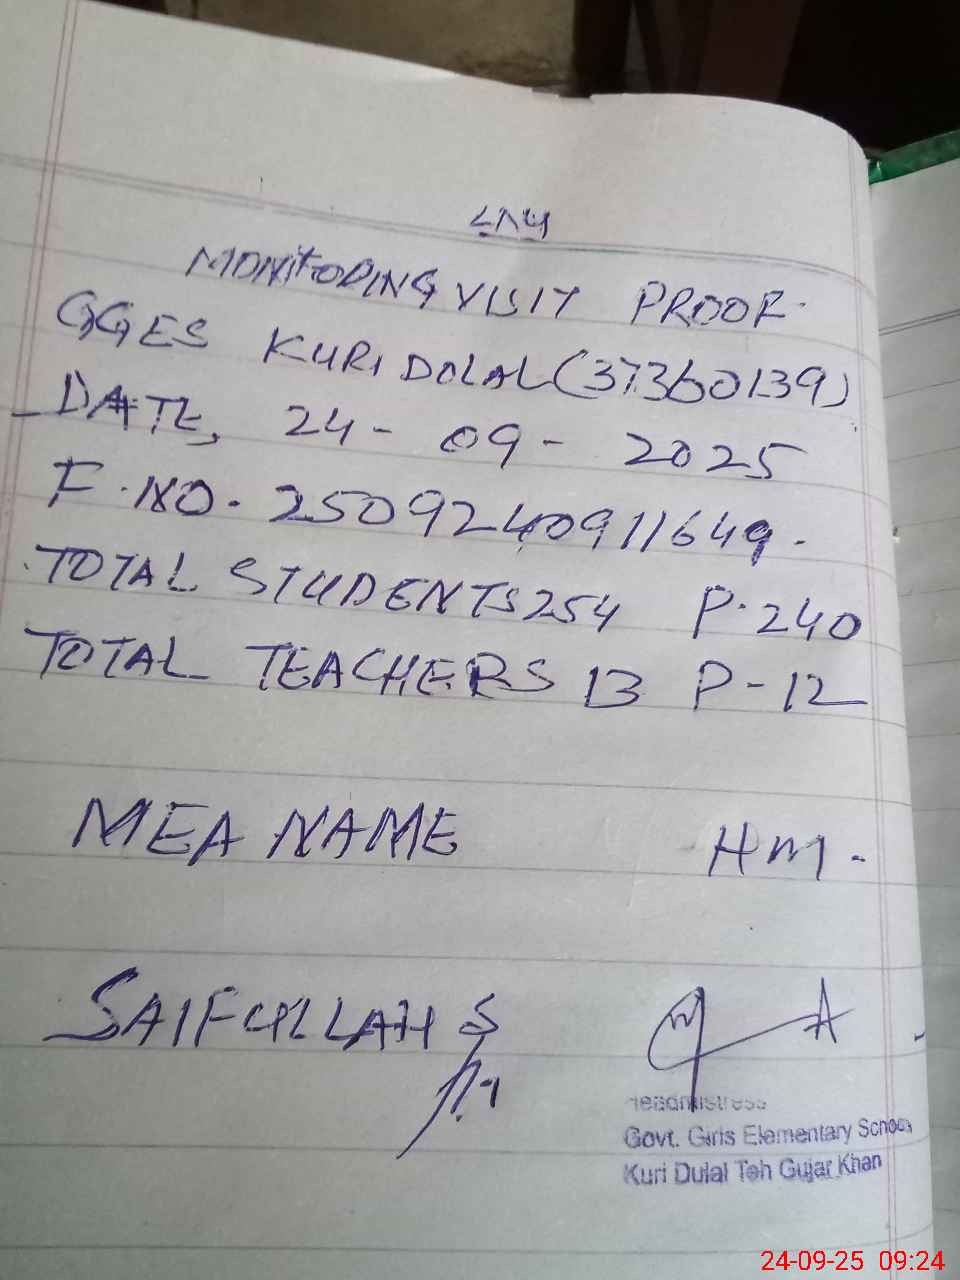 MONITORING VISIT PROOF.
GGES KURI DOLAL (37360139)
DATE, 24-09-2025
F.NO. 2509240911649.
TOTAL STUDENTS 254 P.240
TOTAL TEACHERS 13 P-12
MEA NAME HM.
SAIFULLAH S
Headmistress
Govt. Girls Elementary School
Kuri Dulal Teh Gujar Khan
24-09-25 09:24